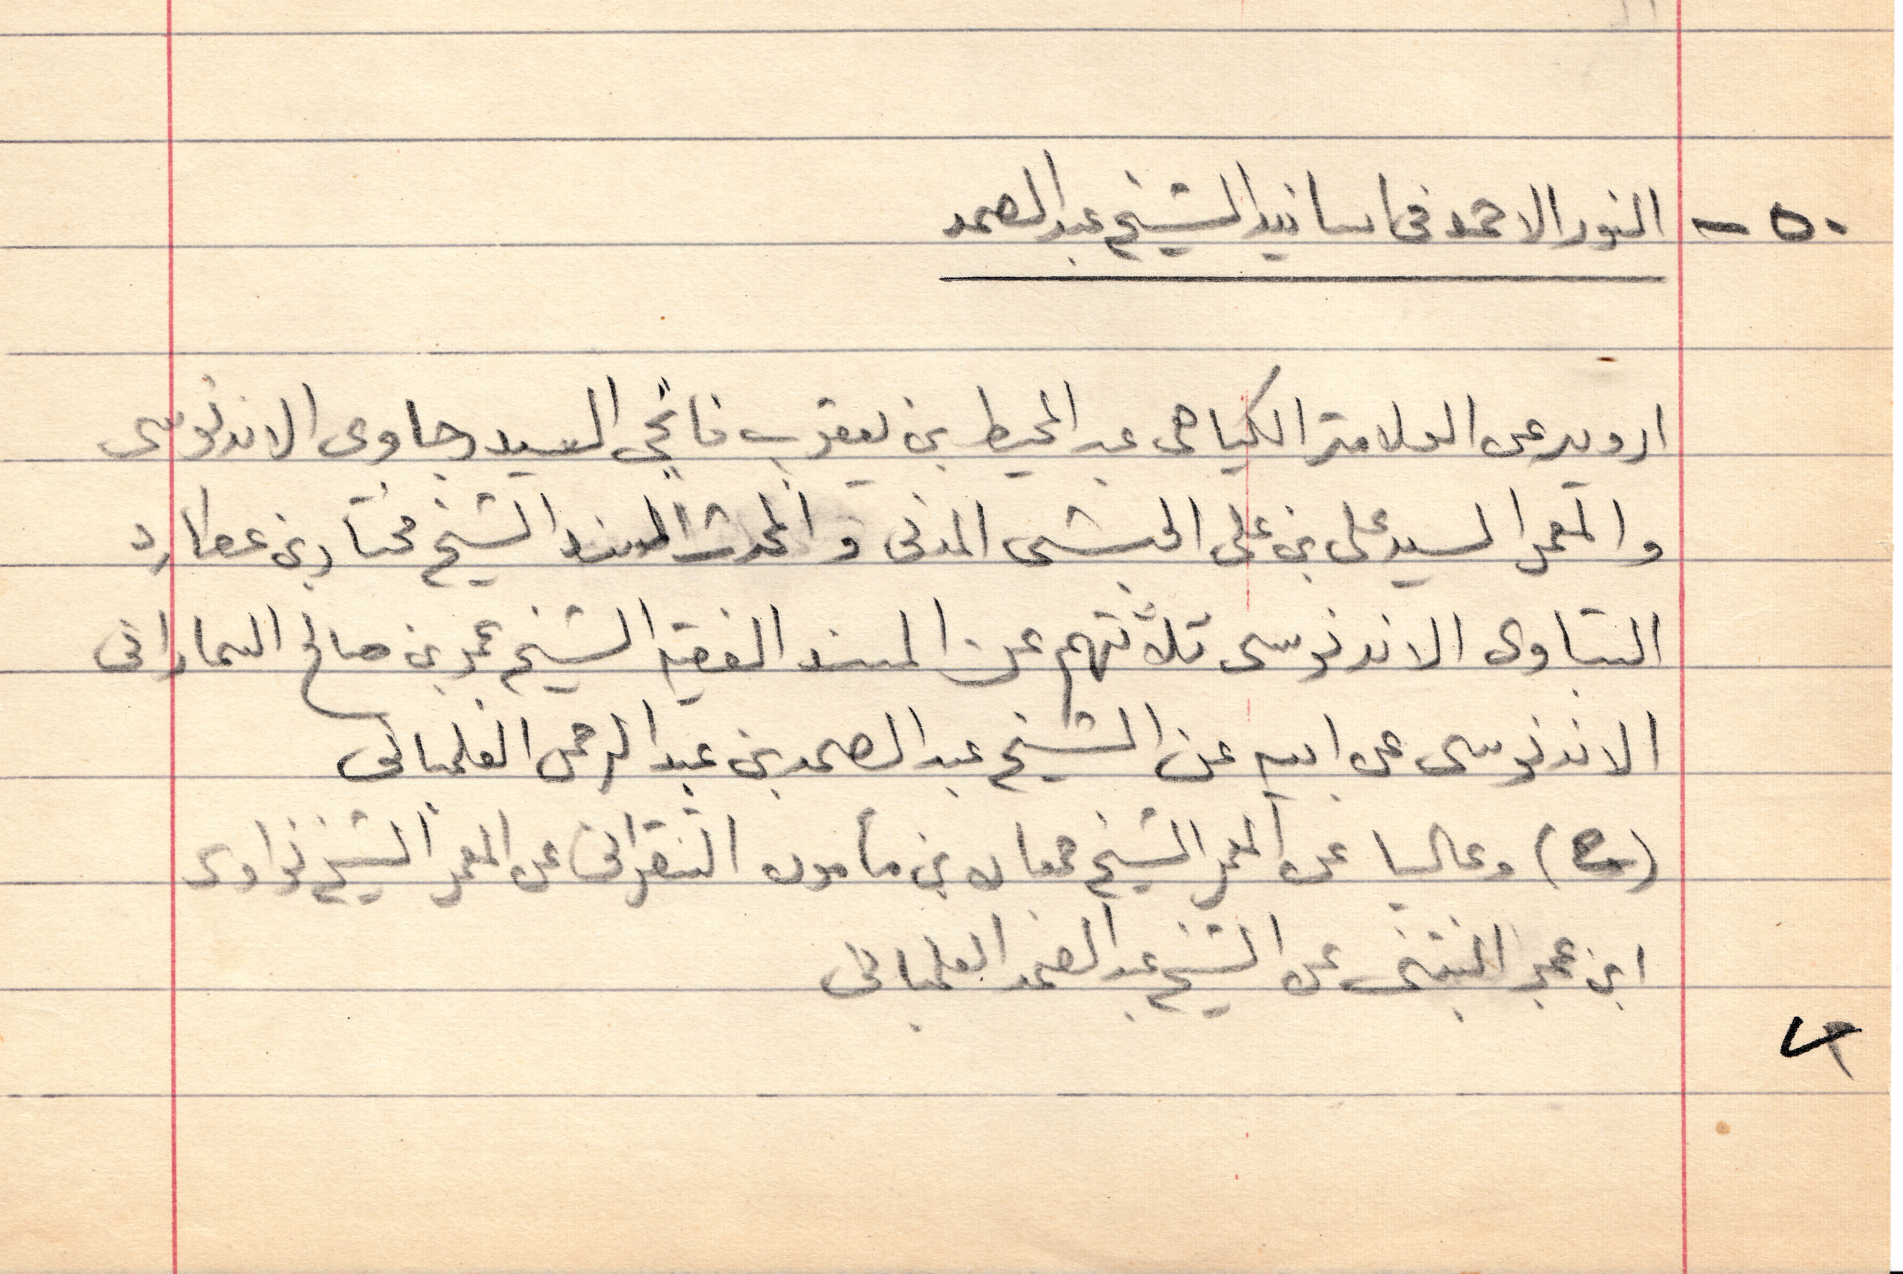 ٥٠ - النور الاحمد فى اسانيد الشيخ عبد الصمد
ارويه عن العلامة الكياهى عبد المحيط بن يعقوب فانجى السيدرجاوى الاندنوسى
والمعمر السيد على بن على الحبشى المدنى والمحدث المسند الشيخ مختار بن عطارد
البتاوى الاندنوسى ثلاثتهم عن المسند الفقيه الشيخ عمر بن صالح السمارانى
الاندنوسى عن ابيه عن الشيخ عبد الصمد بن عبد الرحمن الفلمبانى
(ح) وعاليا عن المعمر الشيخ جمعان بن مأمون التنقرانى عن المعمر الشيخ نواوى
ابن عمر البنتنى عن الشيخ عبد الصمد الفلمبانى